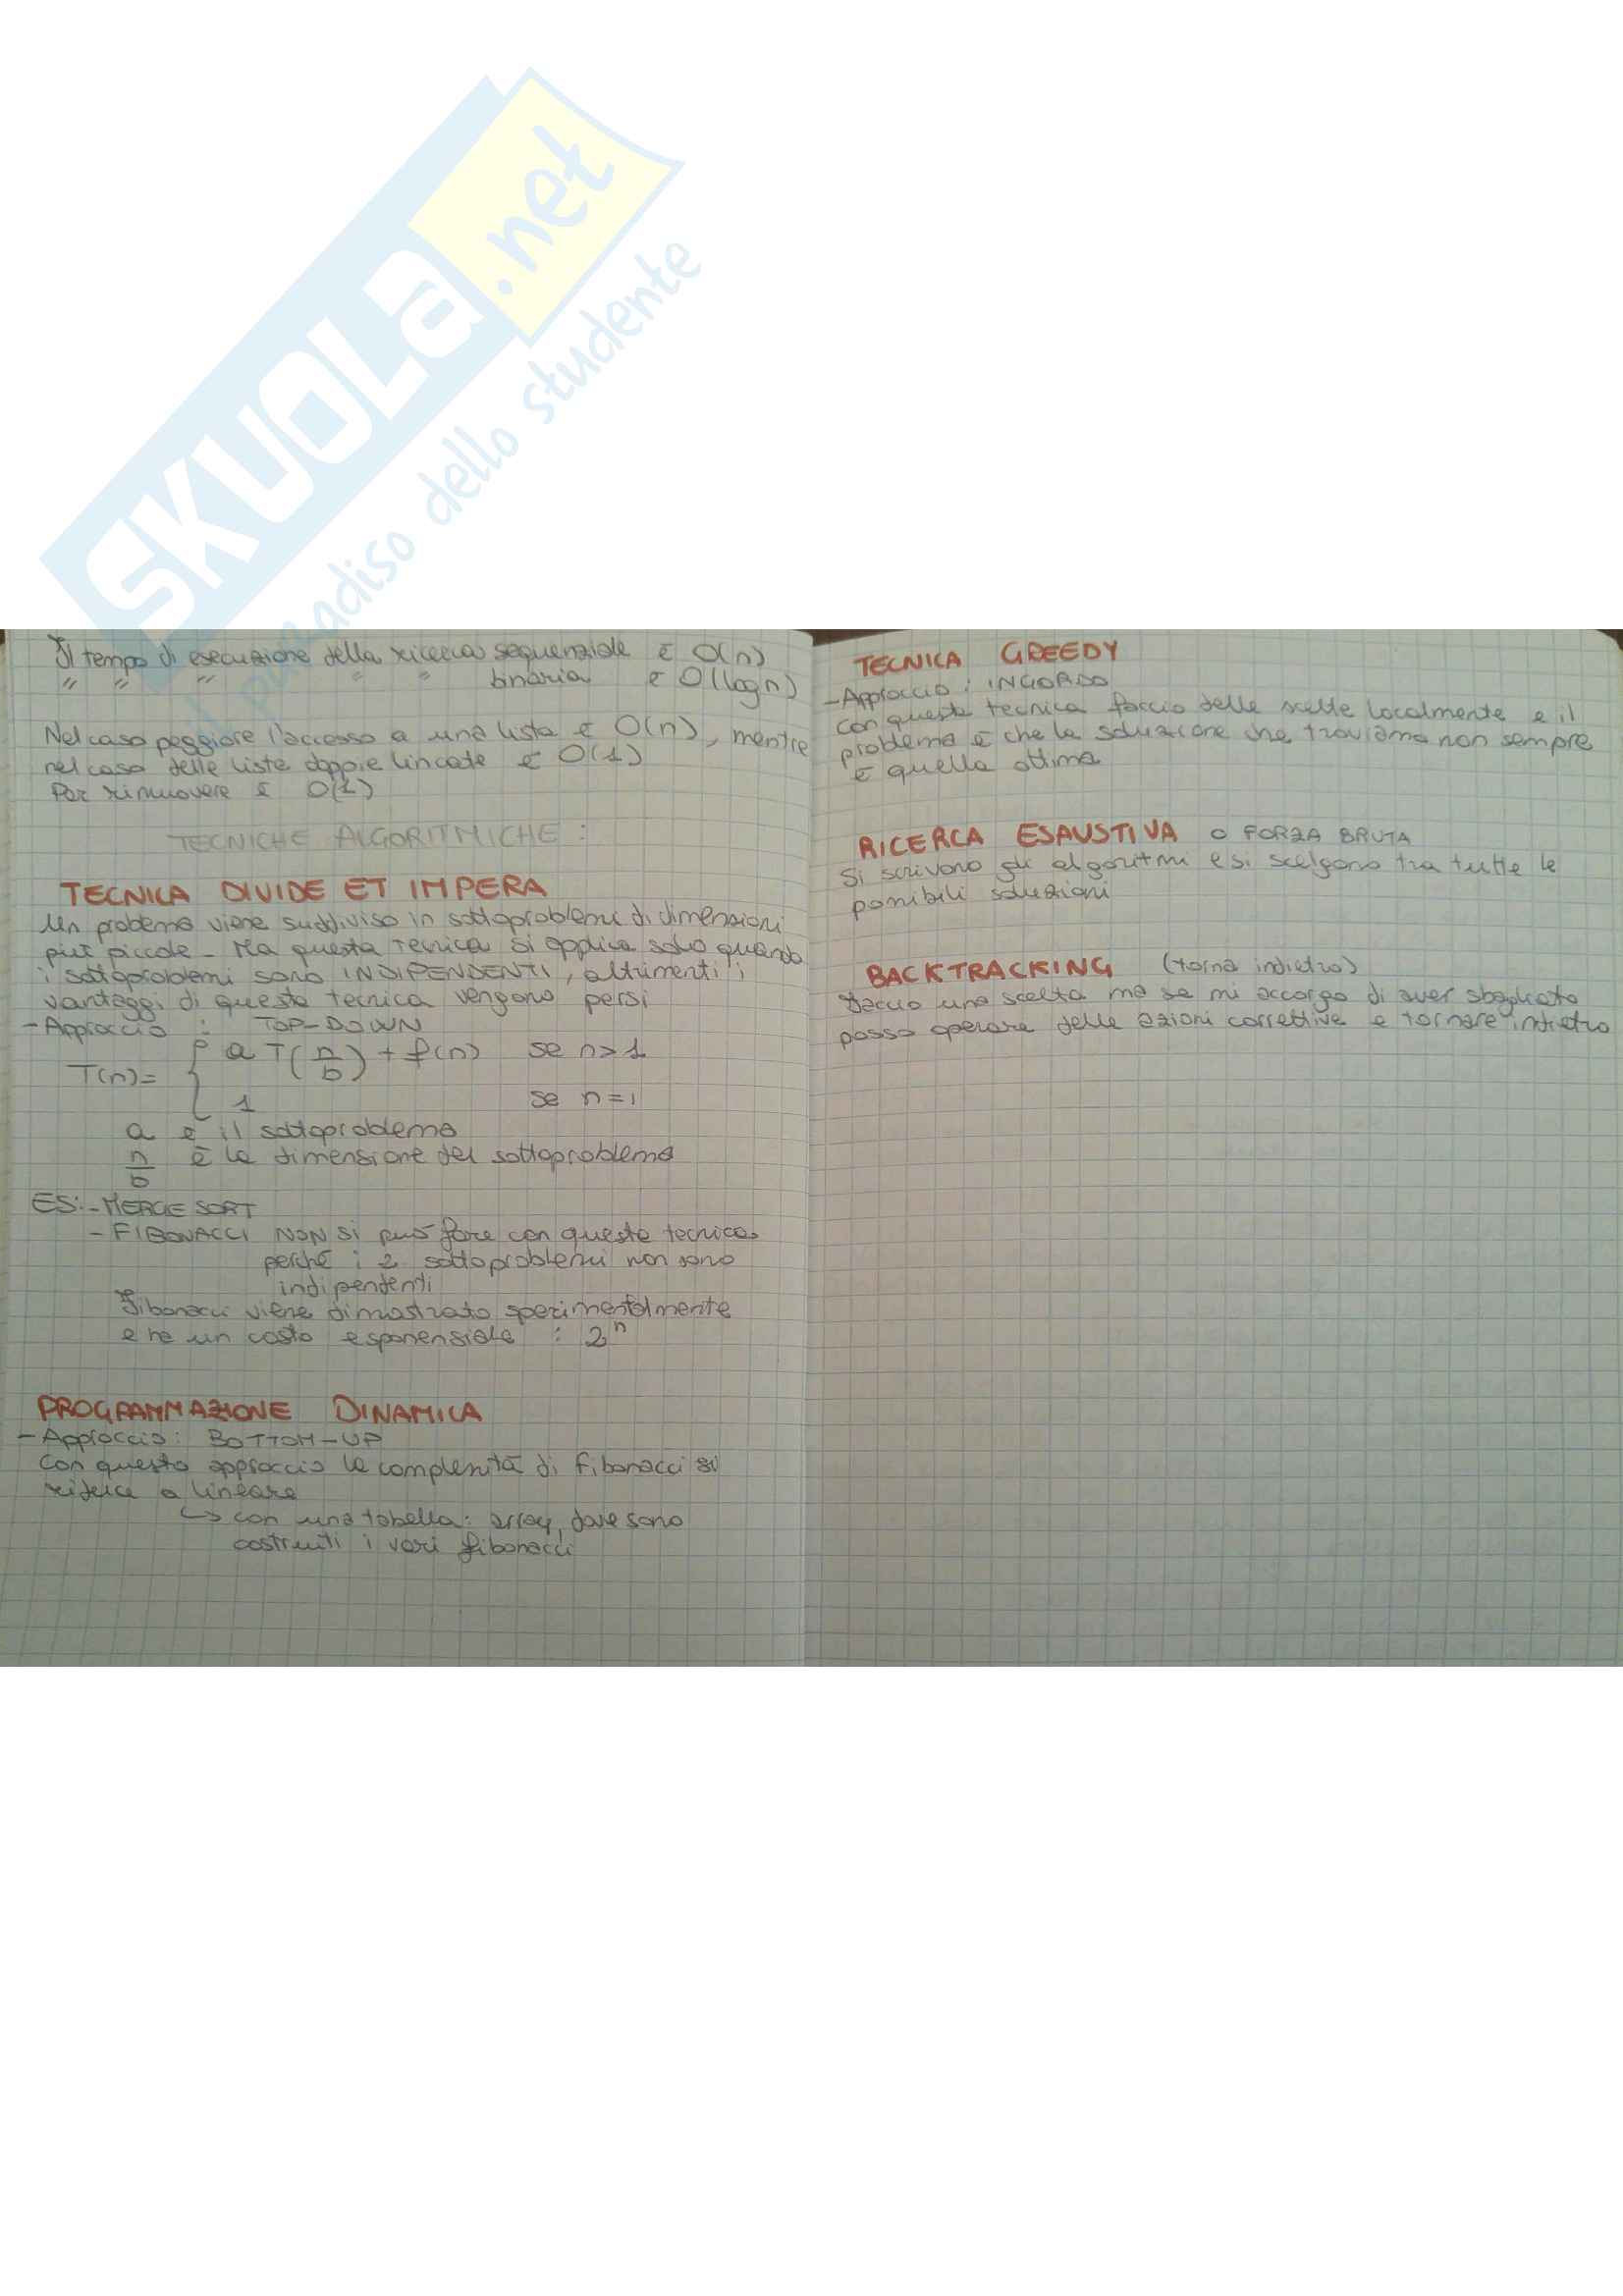 SKUOLA.net
paradiso dello studente
Il tempo di esecuzione della ricerca sequenziale è O(n)
" " " " " binaria è O(log n)
Nel caso peggiore l'accesso a una lista è O(n), mentre
nel caso delle liste doppie lincate è O(1)
Per rimuovere è O(1)
TECNICHE ALGORITMICHE :
TECNICA DIVIDE ET IMPERA
Un problema viene suddiviso in sottoproblemi di dimensioni
più piccole - Ma questa tecnica si applica solo quando
i sottoproblemi sono INDIPENDENTI, altrimenti i
vantaggi di questa tecnica vengono persi
- Approccio : TOP-DOWN
T(n) = { a T(n/b) + f(n) se n>1
1 se n=1
a è il sottoproblema
n/b è la dimensione del sottoproblema
ES: - MERGE SORT
- FIBONACCI NON si può fare con questa tecnica
perché i 2 sottoproblemi non sono
indipendenti
Fibonacci viene dimostrato sperimentalmente
e ha un costo esponenziale : 2^n
PROGRAMMAZIONE DINAMICA
- Approccio : BOTTOM-UP
Con questo approccio la complessità di fibonacci si
riduce a lineare
↳ con una tabella: array, dove sono
costruiti i vari fibonacci
TECNICA GREEDY
- Approccio : INGORDO
Con questa tecnica faccio delle scelte localmente e il
problema è che la soluzione che troviamo non sempre
è quella ottima
RICERCA ESAUSTIVA O FORZA BRUTA
Si scrivono gli algoritmi e si scelgono tra tutte le
possibili soluzioni
BACKTRACKING (torna indietro)
Faccio una scelta ma se mi accorgo di aver sbagliato
posso operare delle azioni correttive e tornare indietro